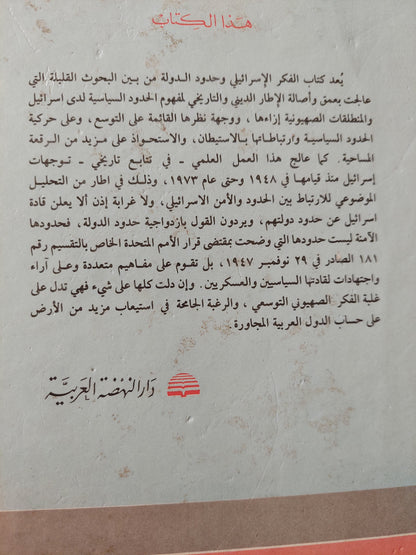 هذا الكتاب
يُعد كتاب الفكر الإسرائيلي وحدود الدولة من بين البحوث القليلة التي
عالجت بعمق وأصالة الإطار الديني والتاريخي لمفهوم الحدود السياسية لدى اسرائيل
والمنطلقات الصهيونية إزاءها، ووجهة نظرها القائمة على التوسع، وعلى حركية
الحدود السياسية وارتباطاتها بالاستيطان، والاستحواذ على مزيد من الرقعة
المساحية. كما عالج هذا العمل العلمي - في تتابع تاريخي - توجهات
إسرائيل منذ قيامها في ١٩٤٨ وحتى عام ١٩٧٣، وذلك في اطار من التحليل
الموضوعي للارتباط بين الحدود والأمن الاسرائيلي، ولا غرابة إذن ألا يعلن قادة
اسرائيل عن حدود دولتهم، ويرددون القول بازدواجية حدود الدولة، فحدودها
الآمنة ليست حدودها التي وضحت بمقتضى قرار الأمم المتحدة الخاص بالتقسيم رقم
١٨١ الصادر في ٢٩ نوفمبر ١٩٤٧، بل تقوم على مفاهيم متعددة وعلى آراء
واجتهادات لقادتها السياسيين والعسكريين. وإن دلت كلها على شيء فهي تدل على
غلبة الفكر الصهيوني التوسعي، والرغبة الجامحة في استيعاب مزيد من الأرض
على حساب الدول العربية المجاورة.
دار النهضة العربية